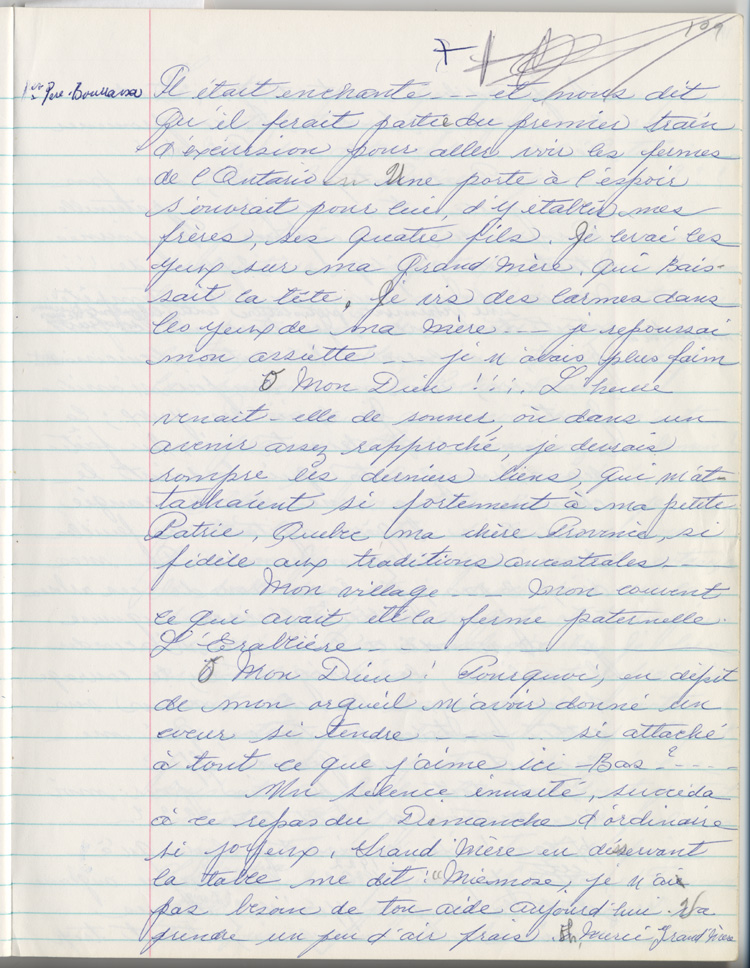 109
Père Bourassa
Il était enchanté --- et nous dit
qu'il ferait partie du premier train
d'excursion pour aller voir les fermes
de l'Ontario Une porte à l'espoir
s'ouvrait pour lui, d'y établir mes
frères, ses quatre fils. Je levai les
yeux sur ma Grand'Mère, qui bais-
sait la tête, Je vis des larmes dans
les yeux de ma Mère --- je repoussai
mon assiette --- je n'avais plus faim
O Mon Dieu !!!. L'heure
venait-elle de sonner, où dans un
avenir assez rapproché, je devais
rompre les derniers liens, qui m'at-
tachaient si fortement à ma petite
Patrie, Quebec ma chère Province, si
fidèle aux traditions ancestrales --
Mon village --- Mon couvent
ce qui avait été la ferme paternelle.
L'Erablière --
O Mon Dieu ! Pourquoi, en dépit
de mon orgueil m'avoir donné un
coeur si tendre ---- si attaché
à tout ce que j'aime ici-Bas ? ----
Un silence inusité, succéda
à ce repas du Dimanche d'ordinaire
si joyeux. Grand'Mère en désservant
la table me dit : "Miemose, je n'ai
pas besoin de ton aide aujourd'hui. Va
prendre un peu d'air frais. Eh, Merci Grand'Mère